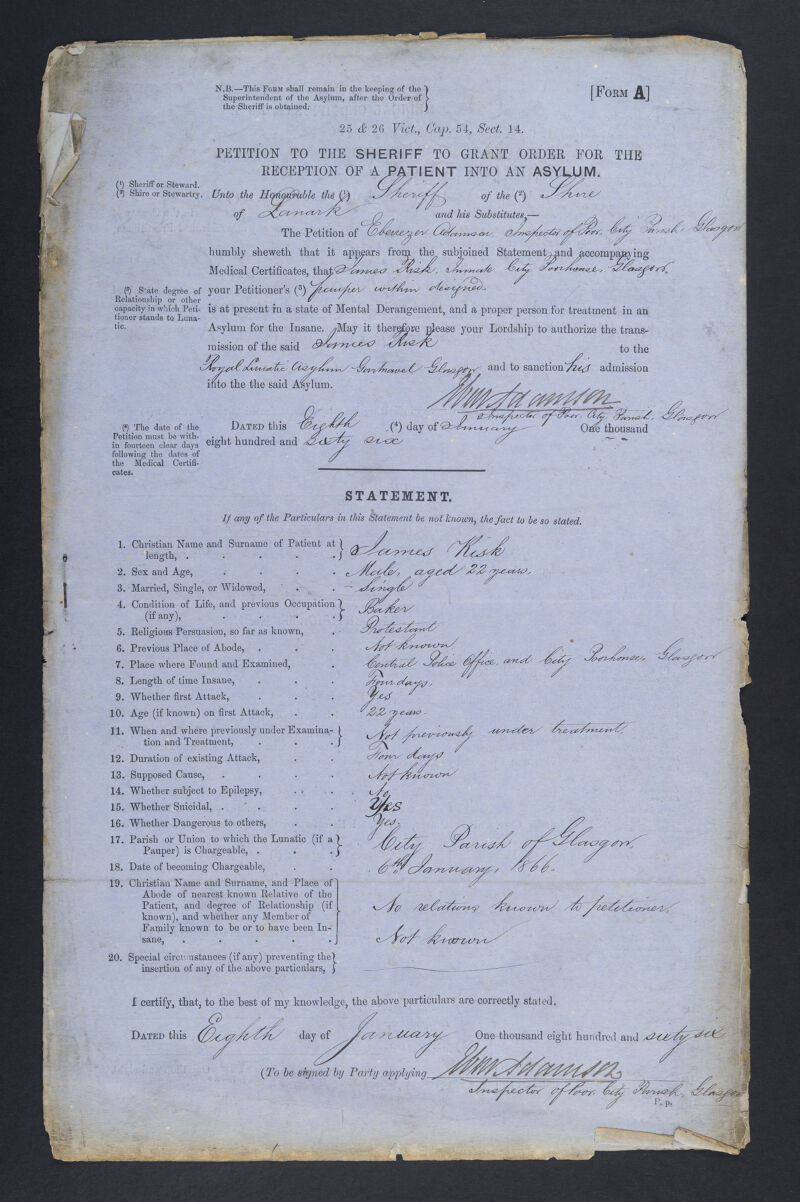 N.B.—This Form shall remain in the keeping of the
Superintendent of the Asylum, after the Order of
the Sheriff is obtained.
[Form A]
25 & 26 Vict., Cap. 54, Sect. 14.
PETITION TO THE SHERIFF TO GRANT ORDER FOR THE
RECEPTION OF A PATIENT INTO AN ASYLUM.
(¹) Sheriff or Steward.
(²) Shire or Stewartry.
Unto the Honourable the (¹) Sheriff of the (²) Shire
of Lanark and his Substitutes,—
The Petition of Ebenezer Adamson, Inspector of Poor, City Parish, Glasgow
humbly sheweth that it appears from the subjoined Statement and accompanying
Medical Certificates, that James Risk, Inmate City Poorhouse, Glasgow,
(³) State degree of
Relationship or other
capacity in which Peti-
tioner stands to Luna-
tic.
your Petitioner's (³) pauper within designed.
is at present in a state of Mental Derangement, and a proper person for treatment in an
Asylum for the Insane. May it therefore please your Lordship to authorize the trans-
mission of the said James Risk to the
Royal Lunatic Asylum Gartnavel Glasgow and to sanction his admission
into the the said Asylum.
Ebenr Adamson
Inspector of Poor, City Parish, Glasgow
(⁴) The date of the
Petition must be with-
in fourteen clear days
following the dates of
the Medical Certifi-
cates.
Dated this Eighth (⁴) day of January One thousand
eight hundred and Sixty six
STATEMENT.
If any of the Particulars in this Statement be not known, the fact to be so stated.
1. Christian Name and Surname of Patient at
length, . . . . . James Risk
2. Sex and Age, . . . . Male, aged 22 years.
3. Married, Single, or Widowed, . . Single
4. Condition of Life, and previous Occupation
(if any), . . . . . Baker
5. Religious Persuasion, so far as known, . Protestant
6. Previous Place of Abode, . . . Not known
7. Place where Found and Examined, . Central Police Office, and City Poorhouse, Glasgow
8. Length of time Insane, . . . Four days.
9. Whether first Attack, . . . Yes
10. Age (if known) on first Attack, . . 22 years.
11. When and where previously under Examina-
tion and Treatment, . . . Not previously under treatment.
12. Duration of existing Attack, . . Four days
13. Supposed Cause, . . . . Not known
14. Whether subject to Epilepsy, . . No
15. Whether Suicidal, . . . . Yes
16. Whether Dangerous to others, . . Yes.
17. Parish or Union to which the Lunatic (if a
Pauper) is Chargeable, . . . City Parish of Glasgow.
18. Date of becoming Chargeable, . . 6th January, 1866.
19. Christian Name and Surname, and Place of
Abode of nearest known Relative of the
Patient, and degree of Relationship (if
known), and whether any Member of
Family known to be or to have been In-
sane, . . . . . .
No relations known to petitioner.
Not known
20. Special circumstances (if any) preventing the
insertion of any of the above particulars,
I certify, that, to the best of my knowledge, the above particulars are correctly stated.
Dated this Eighth day of January One thousand eight hundred and sixty six
(To be signed by Party applying Ebenr Adamson
Inspector of Poor, City Parish, Glasgow